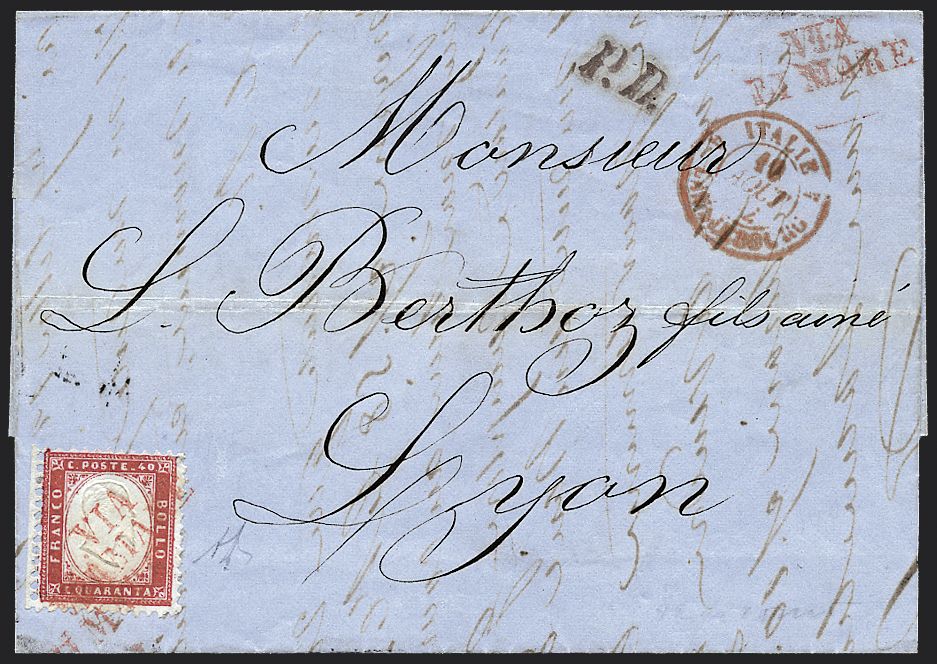 P.D.
VIA
DI MARE
ITALIE
10
AOÛT
Monsieur
L. Berthoz fils ainé
Lyon
C. POSTE. 40
FRANCO
BOLLO
C. QUARANTA
VIA